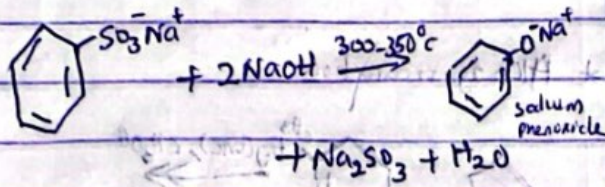 SO₃⁻Na⁺
+ 2NaOH 300-350°C O⁻Na⁺
sodium
phenoxide
+ Na₂SO₃ + H₂O